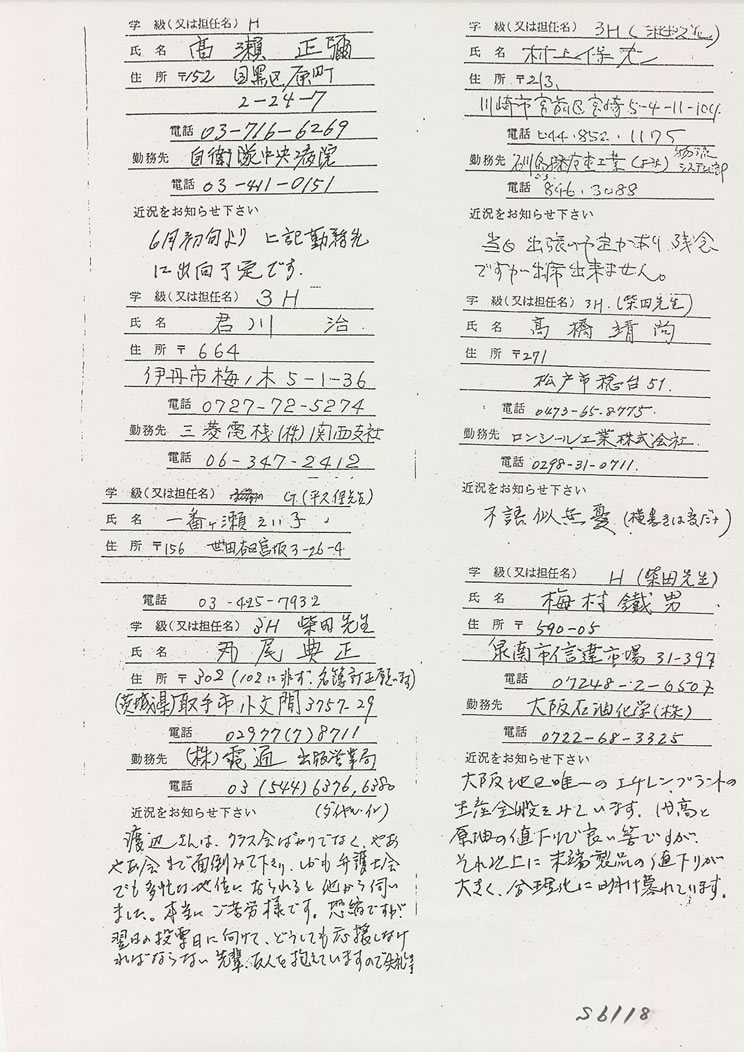 学 級(又は担任名) H
氏 名 髙瀬 正彌
住 所 〒152 目黒区原町
2-24-7
電話 03-716-6269
勤務先 自衛隊中央病院
電話 03-411-0151
近況をお知らせ下さい
6月初旬より 上記勤務先
に出向予定です.
学 級(又は担任名) 3H
氏 名 君川 治
住 所 〒664
伊丹市梅ノ木 5-1-36
電話 0727-72-5274
勤務先 三菱電機(株)関西支社
電話 06-347-2412
学 級(又は担任名) G.(平久保先生)
氏 名 一番ヶ瀬 えい子
住 所 〒156 世田谷区宮坂3-26-4
電話 03-425-7932
学 級(又は担任名) 3H 柴田先生
氏 名 尾 典正
住 所 〒302 (102に非ず.名簿訂正願います)
(茨城県)取手市小文間3757-29
電話 02977(7)8711
勤務先 (株)電通 出版営業局
電話 03(544)6376,6380
近況をお知らせ下さい (ダイヤルイン)
渡辺さんは、クラス会ばかりでなく、やあ
やあ会まで面倒みて下さり、しかも弁護士会
でも多忙な地位になられると他から伺い
ました。本当にご苦労様です。恐縮ですが、
翌日の投票日に向けて、どうしても応援しなけ
ればならない先輩、友人を抱えていますので失礼
学 級(又は担任名) 3H
氏 名 村上保
住 所 〒213.
川崎市宮前区宮崎5-4-11-104
電話 044.852.1175
勤務先 石川島播磨重工業(本社)物流システム
電話 846.3088
近況をお知らせ下さい
当日 出張の予定があり 残念
ですが出席出来ません。
学 級(又は担任名) 3H.(柴田先生)
氏 名 高橋 靖尚
住 所 〒271
松戸市稔台51.
電話 0473-65-8775.
勤務先 ロンシール工業株式会社
電話 0298-31-0711.
近況をお知らせ下さい
不語似無憂(横書きは変だナ)
学 級(又は担任名) H(柴田先生)
氏 名 梅村 鐵男
住 所 〒590-05
泉南市信達市場 31-397
電話 07248-2-6507
勤務先 大阪石油化学(株)
電話 0722-68-3325
近況をお知らせ下さい
大阪地区唯一のエチレンプラントの
生産全般をみています。円高と
原油の値下りで良い筈ですが、
それ以上に末端製品の値下りが
大きく、合理化に明け暮れています。
S6118